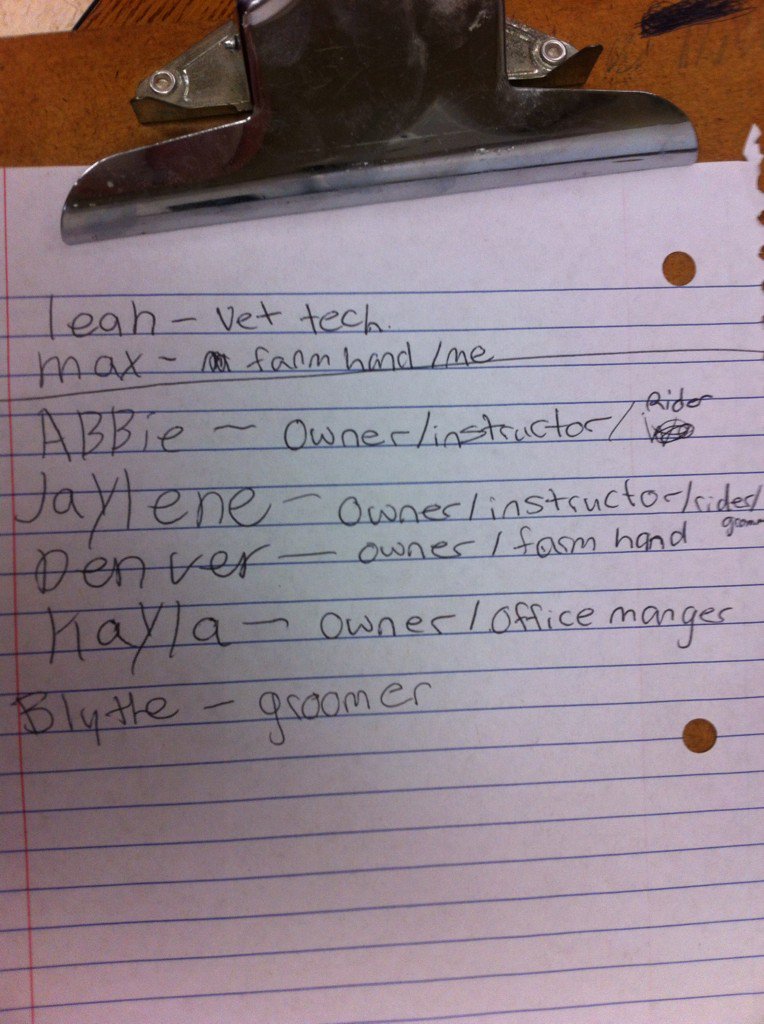 leah - vet tech.
max - farm hand /me
ABBie - Owner/instructor/Rider
Jaylene - owner/instructor/rider/groom
Denver - owner / farm hand
Kayla - owner/office manger
Blythe - groomer